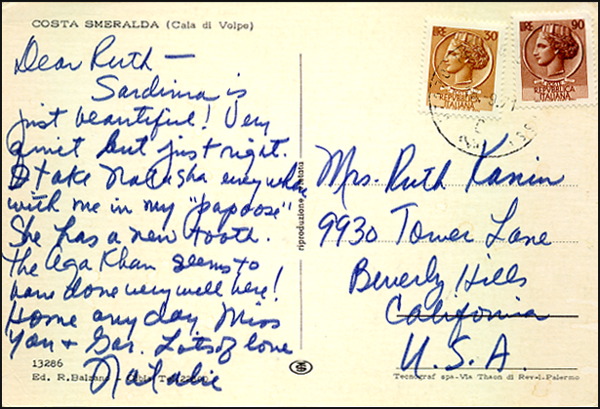 COSTA SMERALDA (Cala di Volpe)
Dear Ruth —
Sardinia is
just beautiful! Very
quiet but just right.
I take Natasha everywhere
with me in my "papoose"
She has a new tooth.
The Aga Khan seems to
have done very well here!
Home any day. Miss
You + Gar. Lots of love
Natalie
13286
Ed. R. Balzano - Olbia
riproduzione vietata
LIRE 30
REPUBBLICA
ITALIANA
LIRE 90
REPUBBLICA
ITALIANA
Mrs. Ruth Kanin
9930 Tower Lane
Beverly Hills
California
U.S.A.
Tecnograf spa - Via Thaon di Revel - Palermo